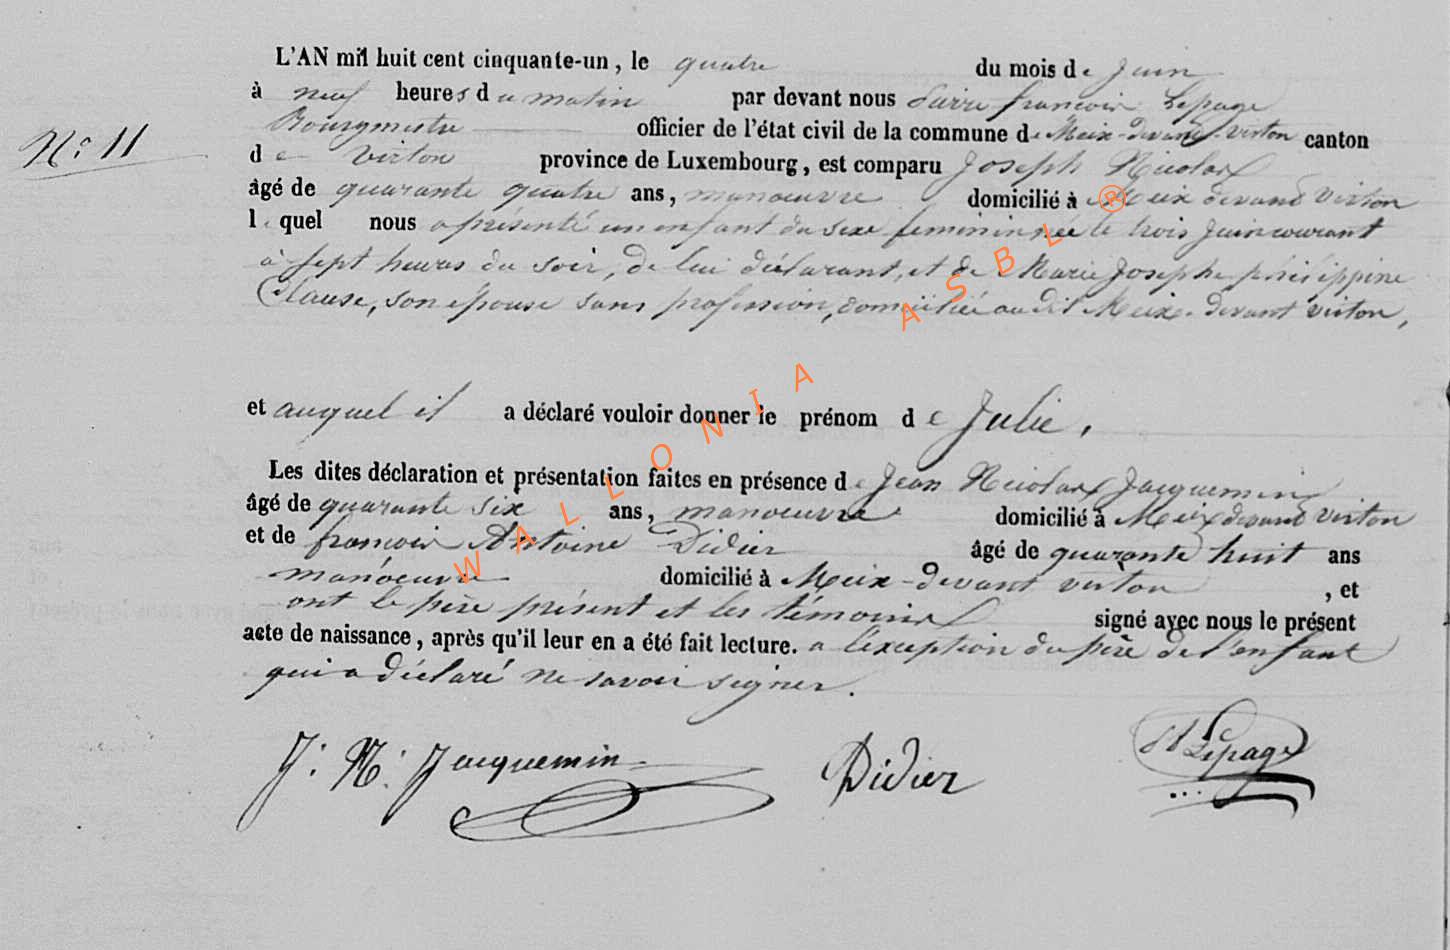 L'AN mil huit cent cinquante-un, le quatre du mois de Juin
à neuf heures du matin par devant nous Pierre françois Lepage
Bourgmestre officier de l'état civil de la commune de Meix-devant-virton canton
N° 11
de virton province de Luxembourg, est comparu Joseph Nicolas
âgé de quarante quatre ans, manoeuvre domicilié à Meix devant virton
lequel nous a présenté un enfant du sexe feminin née le trois Juin courant
à sept heures du soir, de lui déclarant, et de Marie Josephe
Clause, son épouse sans profession, domiciliée au dit Meix-devant virton,
et auquel il a déclaré vouloir donner le prénom de Julie,
Les dites déclaration et présentation faites en présence de Jean Nicolas Jacquemin
âgé de quarante six ans, manoeuvre domicilié à Meix devant virton
et de françois Antoine Didier âgé de quarante huit ans
manoeuvre domicilié à Meix-devant virton, et
ont le père présent et les témoins signé avec nous le présent
acte de naissance, après qu'il leur en a été fait lecture. a l'exception du père de l'enfant
qui a déclaré ne savoir signer.
J. N. Jacquemin Didier Lepage
WALLONIA ASBL ®